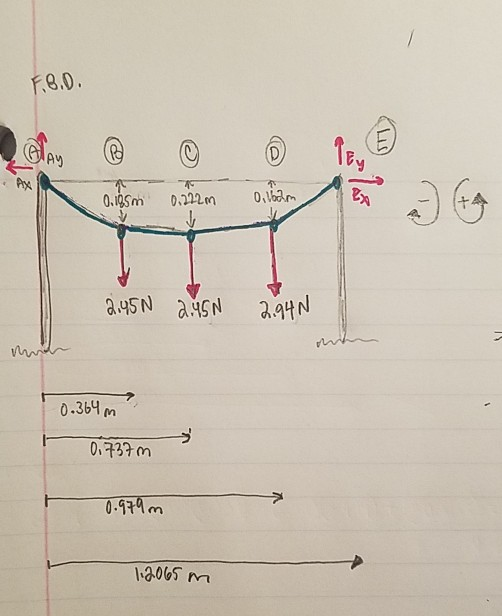 F.B.D.
A Ay B C D Ey E
Ax 0.185m 0.222m 0.162m Ex - +
2.45N 2.45N 2.94N
0.364m
0.737m
0.979m
1.2065m